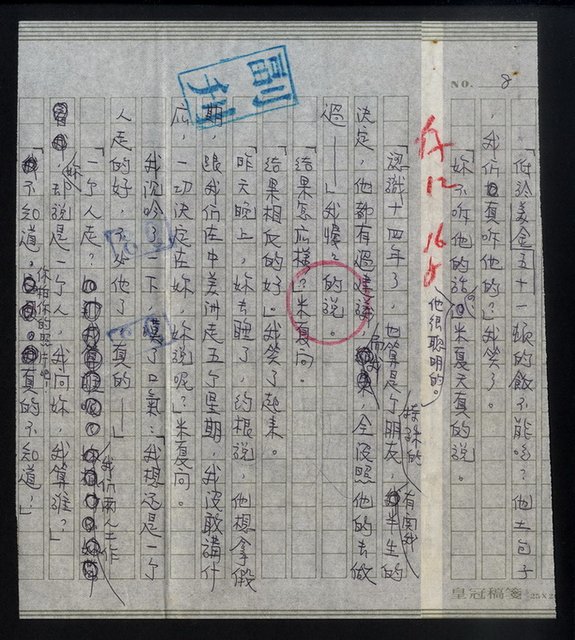 NO. 8
「低於美金五十一頓的飯不能吃?他土包子
,我們真听他的?」我笑了。
「妳不听他的話。」米夏天真的說。
他很聰明的。
「認識十四年了,也算是个朋友,有關我半生的
決定,他都有過建議,全沒照他的去做
過——」我慢慢的說。
「結果怎麼樣?」米夏問。
「結果相反的好。」我笑了起來。
「昨天晚上,妳去睡了,約根說,他想拿假
期,跟我們在中美洲走五个星期,我沒敢講什
應,一切決定在妳,妳說呢?」米夏問。
我沉吟了一下,嘆了口氣「我想還是一个
人走的好,不必他了,真的——」
「一个人走?我們兩人工作
妳卻說是一个人,我問妳,我算誰?」
「不知道,你拍你的照片吧!真的不知道。」
副刊
皇冠稿箋